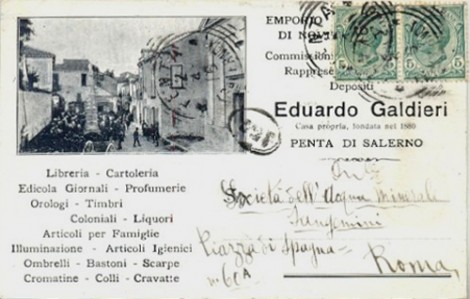 EMPORIO
DI NOV
Commission
Rappres
Depositi
Eduardo Galdieri
Casa propria, fondata nel 1880
PENTA DI SALERNO
Libreria - Cartoleria
Edicola Giornali - Profumerie
Orologi - Timbri
Coloniali - Liquori
Articoli per Famiglie
Illuminazione - Articoli Igienici
Ombrelli - Bastoni - Scarpe
Cromatine - Colli - Cravatte
Società dell'Acqua Minerale
Sangemini
Piazza di Spagna
Roma
5 5 5